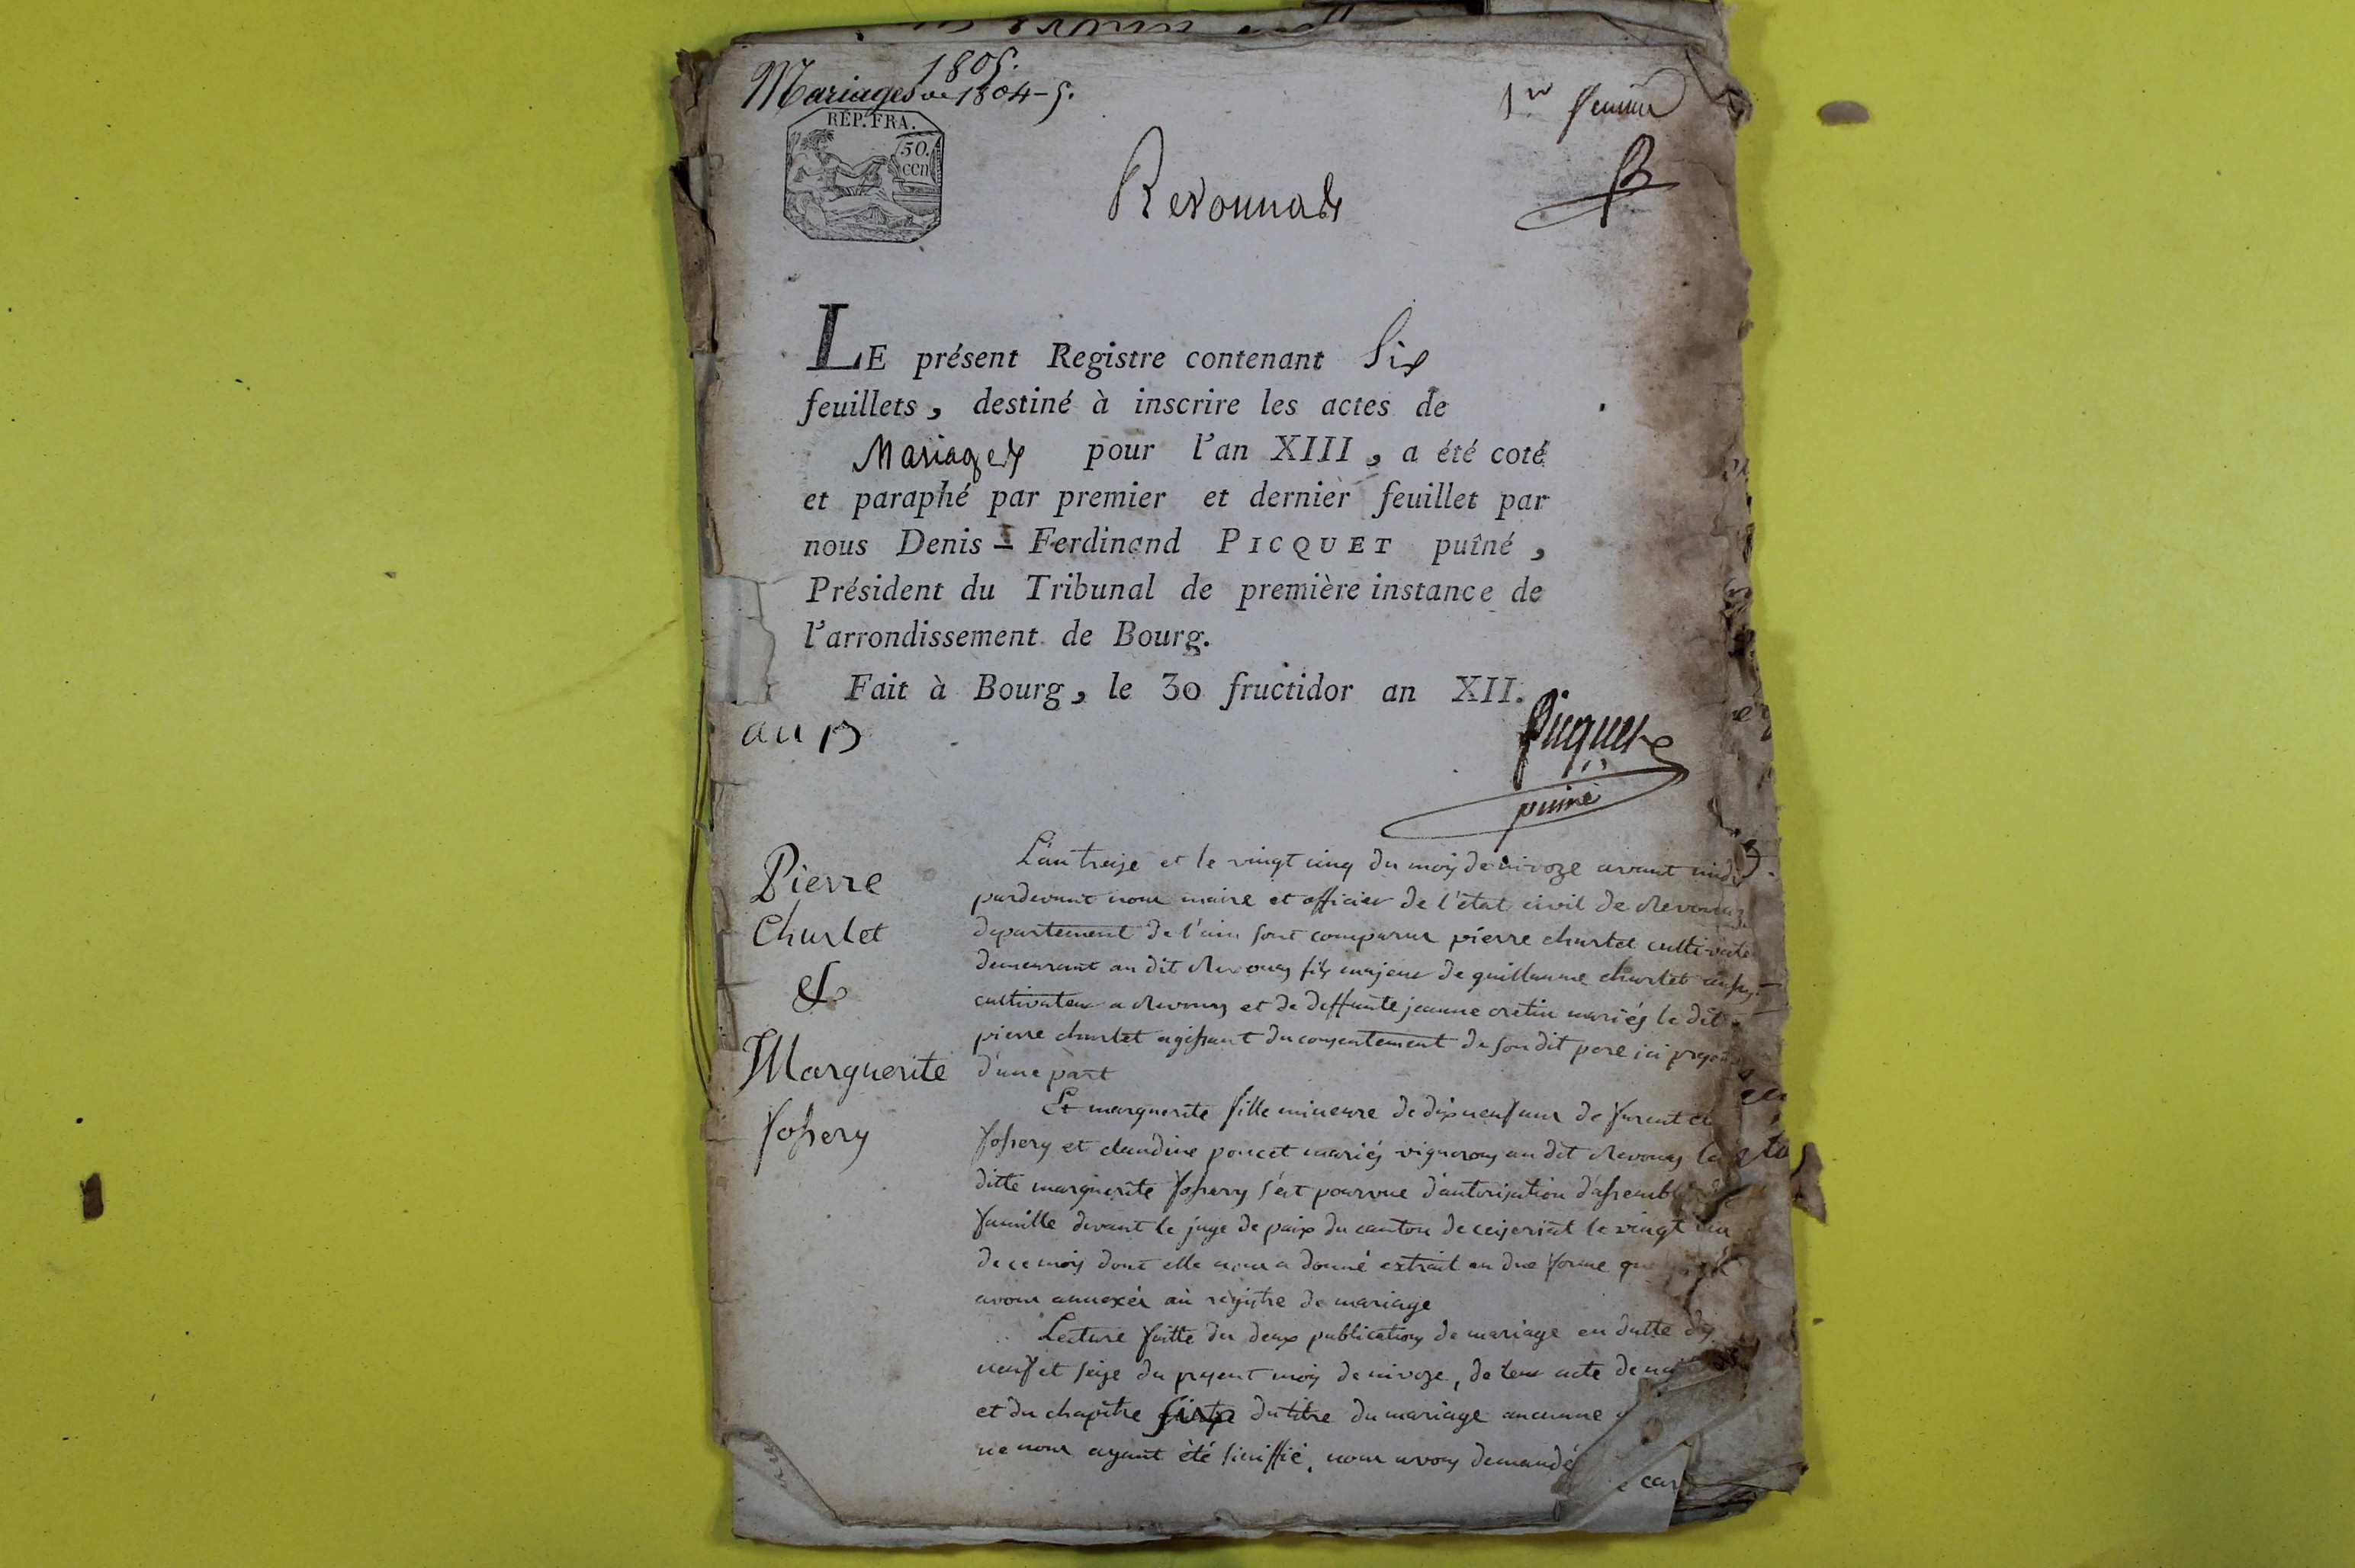 1805.
Mariages de 1804-5.
1er feuillet
RÉP. FRA.
50.
cen
Revonnas
LE présent Registre contenant Six
feuillets, destiné à inscrire les actes de
Mariages pour l'an XIII, a été coté
et paraphé par premier et dernier feuillet par
nous Denis-Ferdinand PICQUET puîné,
Président du Tribunal de première instance de
l'arrondissement de Bourg.
Fait à Bourg, le 30 fructidor an XII.
an 13
Picquet
puiné
Pierre
Churlet
&
Marguerite
Jossery
L'an treize et le vingt cinq du mois de nivoze avant midi
pardevant nous maire et officier de l'état civil de Revonnas
departement de l'ain sont comparus pierre churlet cultivateur
demeurant au dit Revonas fils majeur de guillaume churlet aussy
cultivateur a Revonas et de deffunte jeanne cretin mariés le dit
pierre churlet agissant du consentement de son dit pere ici present
d'une part
Et marguerite fille mineure de dix neuf ans de
Jossery et claudine poncet mariés vignerons au dit Revonas la
ditte marguerite Jossery s'est pourvue d'autorisation d'assemblée de
famille devant le juge de paix du canton de ceizeriat le vingt
de ce mois dont elle nous a donné extrait en due forme que
avons annexés au registre de mariage
Lecture faitte des deux publications de mariage en datte des
neuf et seize du present mois de nivoze, de leur acte de
et du chapitre six du titre du mariage aucunne
ne nous ayant été sinifié, nous avons demandé